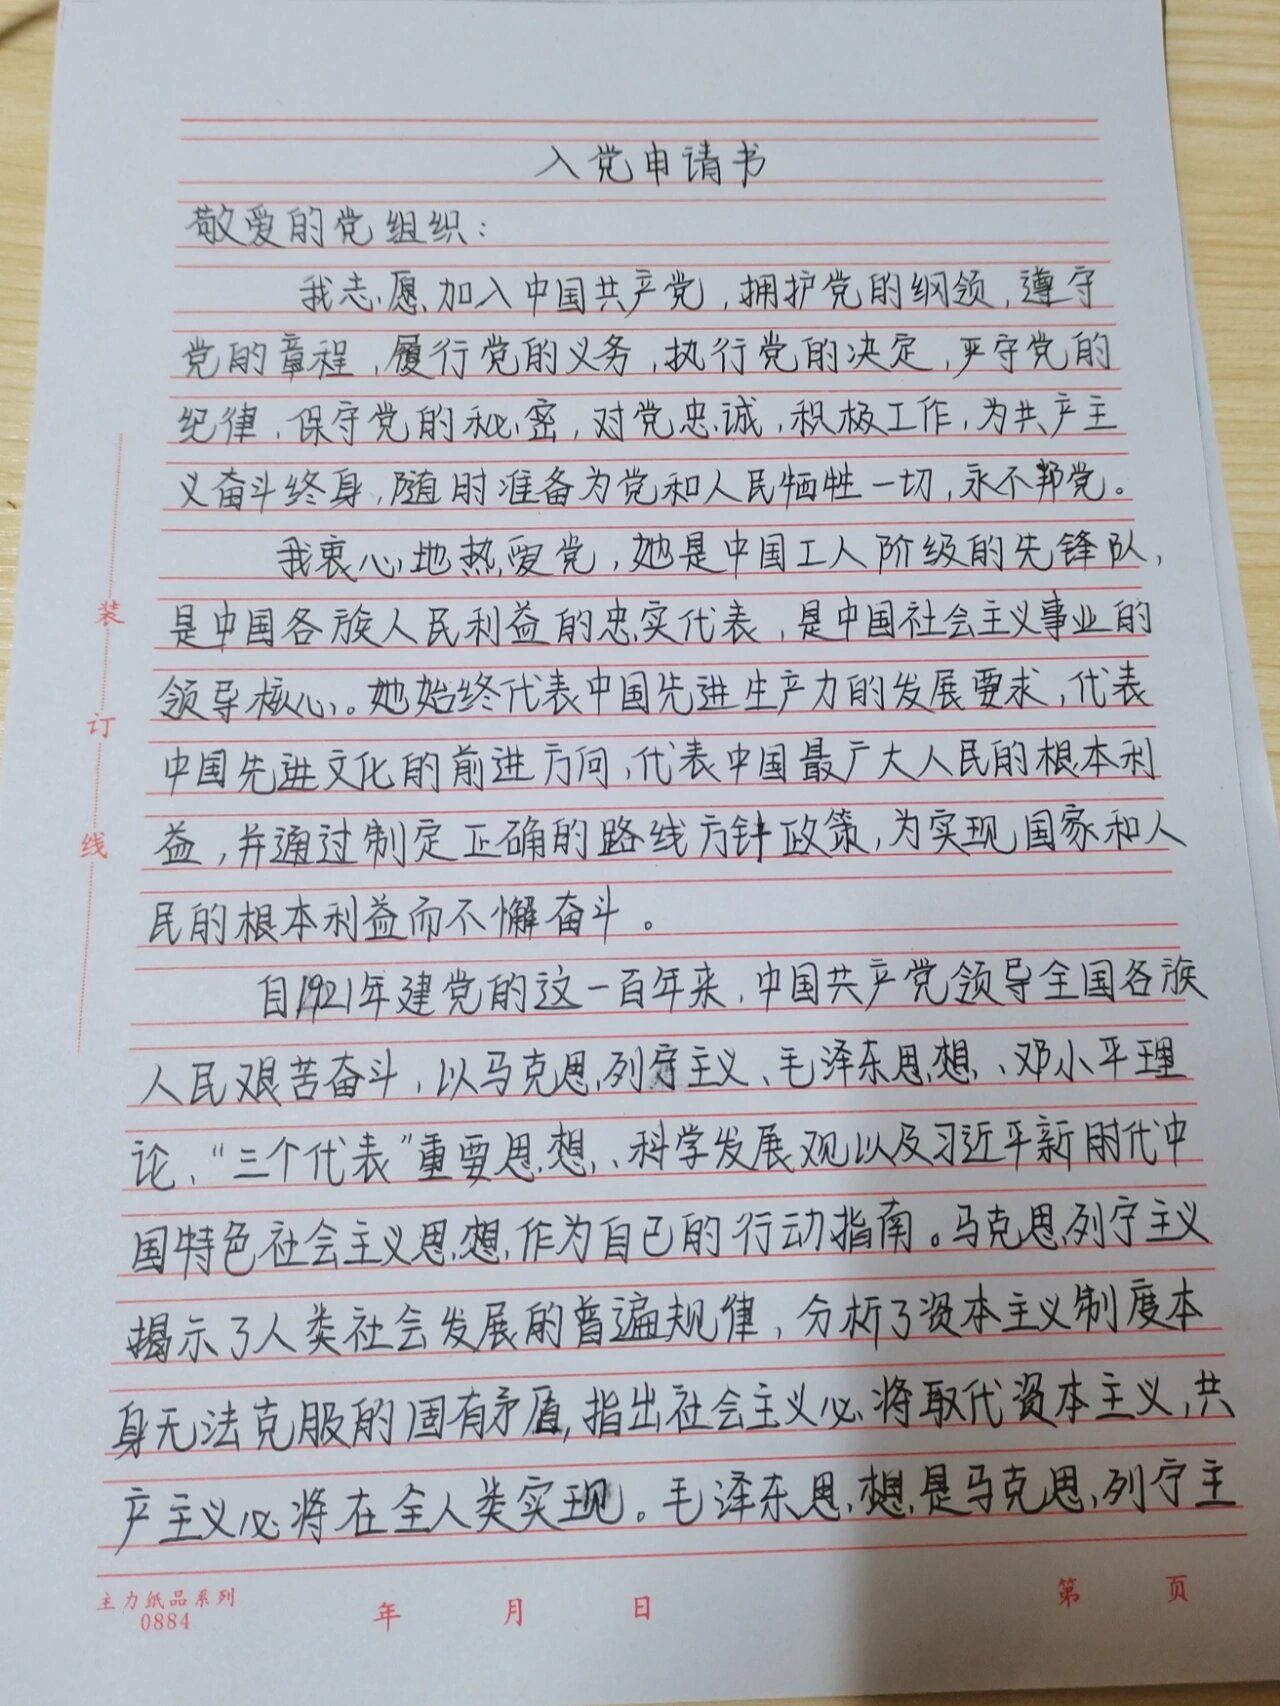 入党申请书
敬爱的党组织:
我志愿加入中国共产党,拥护党的纲领,遵守
党的章程,履行党的义务,执行党的决定,严守党的
纪律,保守党的秘密,对党忠诚,积极工作,为共产主
义奋斗终身,随时准备为党和人民牺牲一切,永不邦党。
我衷心地热爱党,她是中国工人阶级的先锋队,
是中国各族人民利益的忠实代表,是中国社会主义事业的
领导核心。她始终代表中国先进生产力的发展要求,代表
中国先进文化的前进方向,代表中国最广大人民的根本利
益,并通过制定正确的路线方针政策,为实现国家和人
民的根本利益而不懈奋斗。
自1921年建党的这一百年来,中国共产党领导全国各族
人民艰苦奋斗,以马克思列宁主义、毛泽东思想、邓小平理
论、“三个代表”重要思想、科学发展观以及习近平新时代中
国特色社会主义思想作为自己的行动指南。马克思列宁主义
揭示了人类社会发展的普遍规律,分析了资本主义制度本
身无法克服的固有矛盾,指出社会主义必将取代资本主义,共
产主义必将在全人类实现。毛泽东思想是马克思列宁主
装
订
线
主力纸品系列
0884
年 月 日
第 页